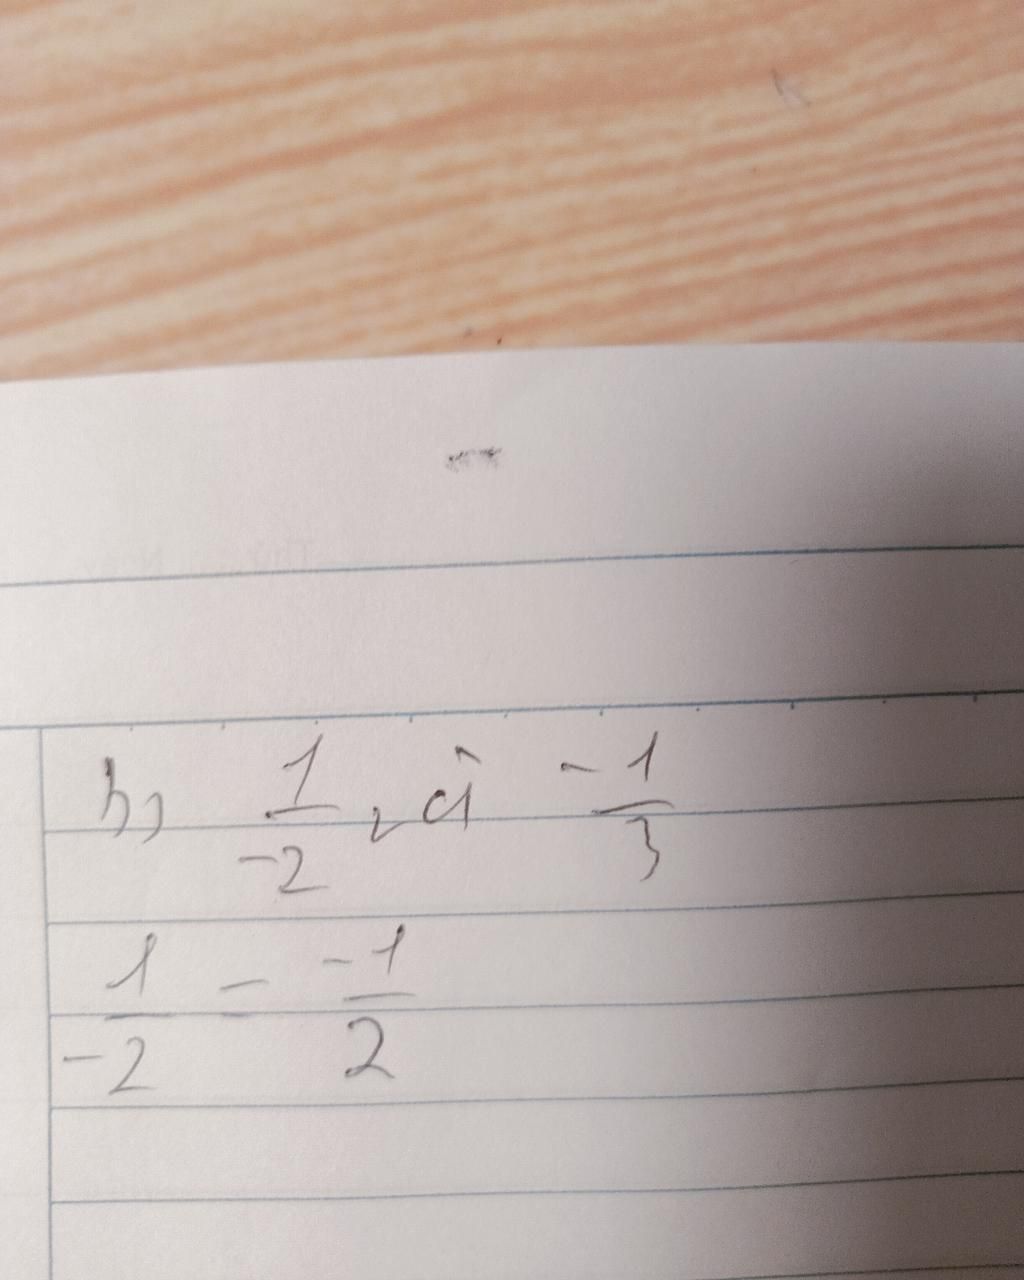 b, 1/-2 và -1/3
1/-2 = -1/2